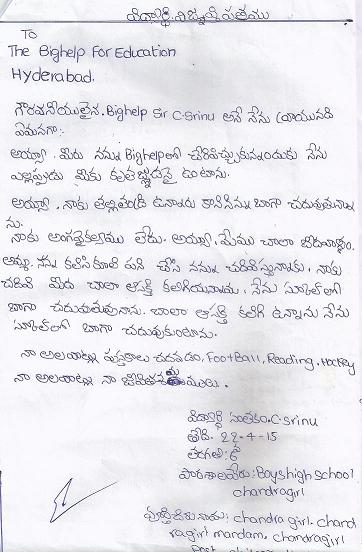 విద్యార్థి విజ్ఞప్తి పత్రము
To
The Bighelp For Education
Hyderabad.
గౌరవనీయులైన, Bighelp Sir C-Srinu అనే నేను వ్రాయునది
ఏమనగా:
అయ్యా, మీరు నన్ను Bighelpలో చేర్పించుకున్నందుకు నేను
ఎల్లప్పుడు మీకు కృతజ్ఞుడనై ఉంటాను.
అయ్యా, నాకు తల్లితండ్రి ఉన్నారు బాగా చదువుతున్నా
ను.
నాకు అంగవైకల్యము లేదు. అయ్యా, మేము చాలా
అమ్మ, నాన్న కూలి పని చేసి నన్ను చదివిస్తున్నారు, నాకు
చదివే మీద చాలా ఆసక్తి నేను స్కూల్ లో
బాగా చదువుతున్నాను. చాలా ఆసక్తి కలిగి ఉన్నాను నేను
స్కూల్ లో బాగా చదువుకుంటాను.
నా అలవాట్లు పుస్తకాలు చదవడం, FootBall, Reading, Hockey
నా అలవాట్లు నా
విద్యార్థి సంతకం. C-Srinu
తేది. 22-4-15
తరగతి:
పాఠశాల పేరు: Boys high School
chandragiri
పూర్తి చిరునామా: chandra giri. chand
ragiri mandam, chandragiri